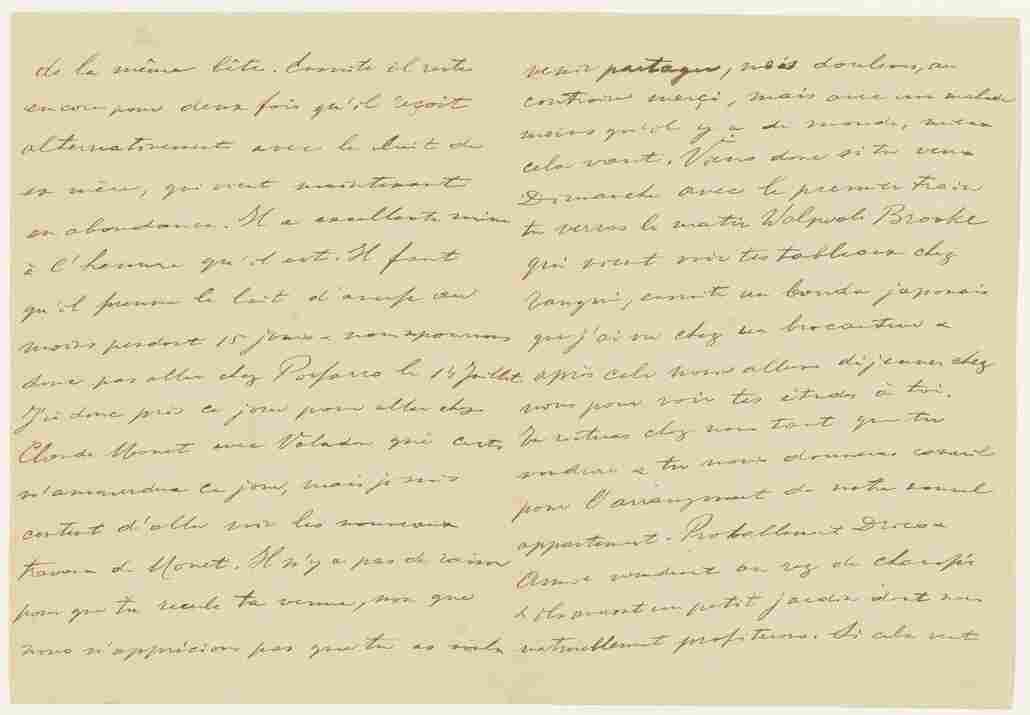 de la même bête. Ensuite il reste
encore pour deux fois qu'il reçoit
alternativement avec le lait de
sa mère, qui vient maintenant
en abondance. Il a excellente mine
à l'heure qu'il est. Il faut
qu'il prenne le lait d'anesse au
moins pendant 15 jours & nous ne pourrons
donc pas aller chez Pissarro le 14 Juillet
J'ai donc pris ce jour pour aller chez
Claude Monet avec Valadon qui certes
m'emmerdera ce jour, mais je suis
content d'aller voir les nouveaux
travaux de Monet. Il n'y a pas de raison
pour que tu recule ta venue, non que
nous n'apprécions pas que tu as voulu
venir partager, nos douleurs, au
contraire merçi, mais avec un malade
moins qu'il y a de monde, mieux
cela vaut. Viens donc si tu veux
Dimanche avec le premier train
tu verras le matin Walpole Brooke
qui vient voir tes tableaux chez
Tangui, ensuite un bouda japonais
que j'ai vu chez un brocanteur &
après cela nous allons déjeuner chez
nous pour voir tes études à toi.
Tu resteras chez nous tant que tu
voudras & tu nous donneras conseil
pour l'arrangement de notre nouvel
appartement. Probablement Dries &
Annie vendront au rez de chaussée
& ils auront un petit jardin dont nous
naturellement profiterons. Si cela veut